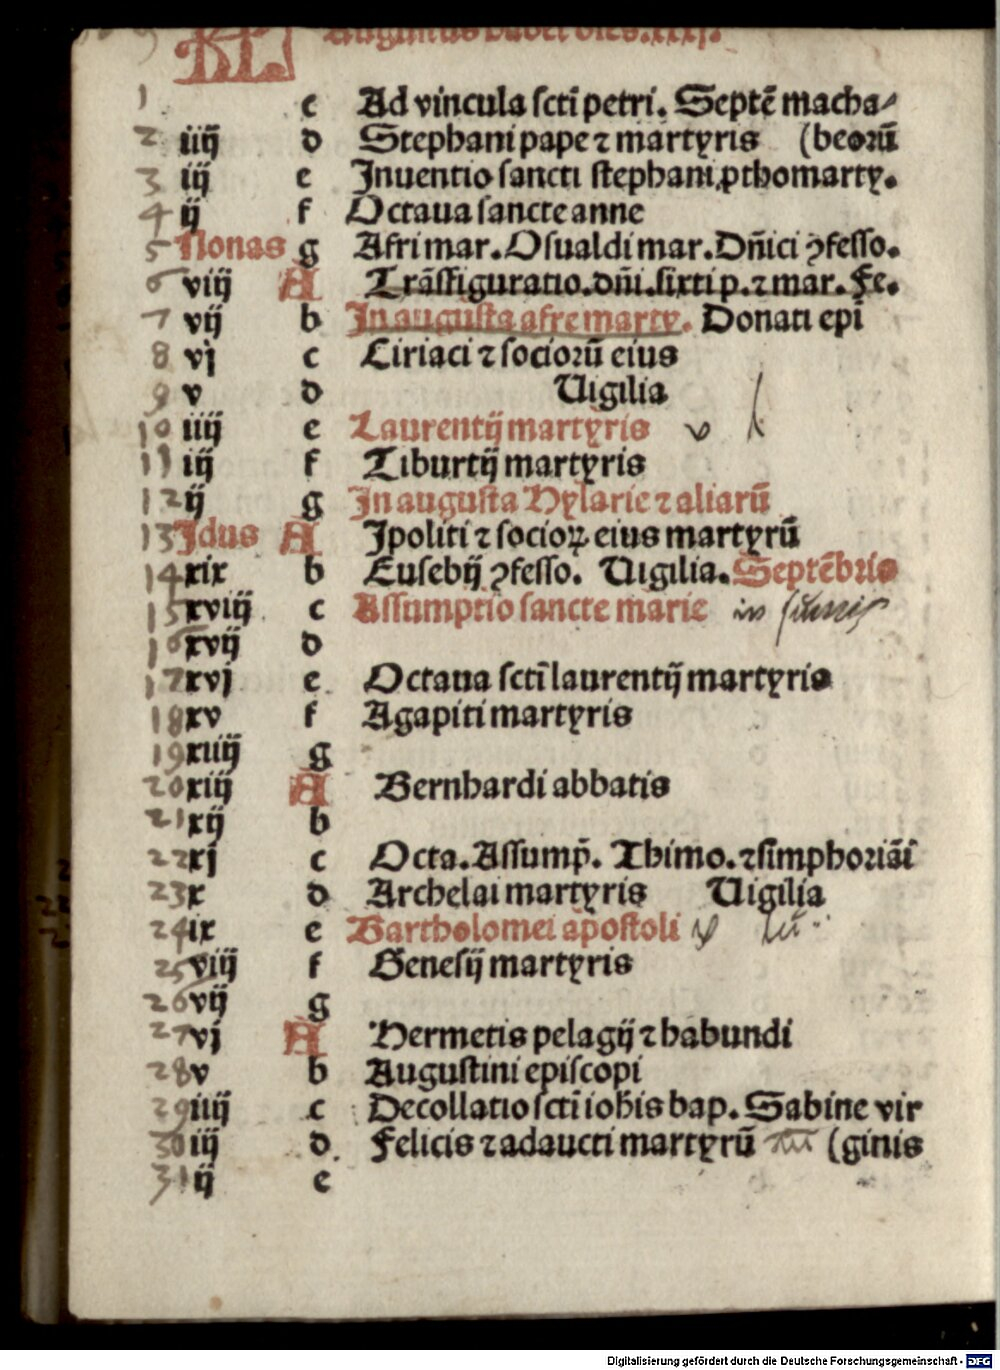 KL Augustus habet dies .xxxj.
1 c Ad vincula scti petri. Septē macha⸗
2 iiij d Stephani pape ⁊ martyris (beorū
3 iij e Inuentio sancti stephani ꝓthomarty.
4 ij f Octaua sancte anne
5 Nonas g Afri mar. Osualdi mar. Dn̄ici ꝯfesso.
6 viij A Trāsfiguratio. dn̄i. sixti p. ⁊ mar. Fe.
7 vij b In augusta afre marty. Donati epi
8 vj c Ciriaci ⁊ socioꝛū eius
9 v d Uigilia
10 iiij e Laurentij martyris
11 iij f Tiburtij martyris
12 ij g In augusta Hylarie ⁊ aliarū
13 Idus A Ipoliti ⁊ socioꝝ eius martyrū
14 xix b Eusebij ꝯfesso. Uigilia. Septēbris
15 xviij c Assumptio sancte marie
16 xvij d
17 xvj e Octaua scti laurentij martyris
18 xv f Agapiti martyris
19 xiiij g
20 xiij A Bernhardi abbatis
21 xij b
22 xj c Octa. Assump̄. Thimo. ⁊ simphoriāi
23 x d Archelai martyris Uigilia
24 ix e Bartholomei apostoli
25 viij f Genesij martyris
26 vij g
27 vj A Hermetis pelagij ⁊ habundi
28 v b Augustini episcopi
29 iiij c Decollatio scti iohis bap. Sabine vir
30 iij d Felicis ⁊ adaucti martyrū (ginis
31 ij e
Digitalisierung gefördert durch die Deutsche Forschungsgemeinschaft - DFG